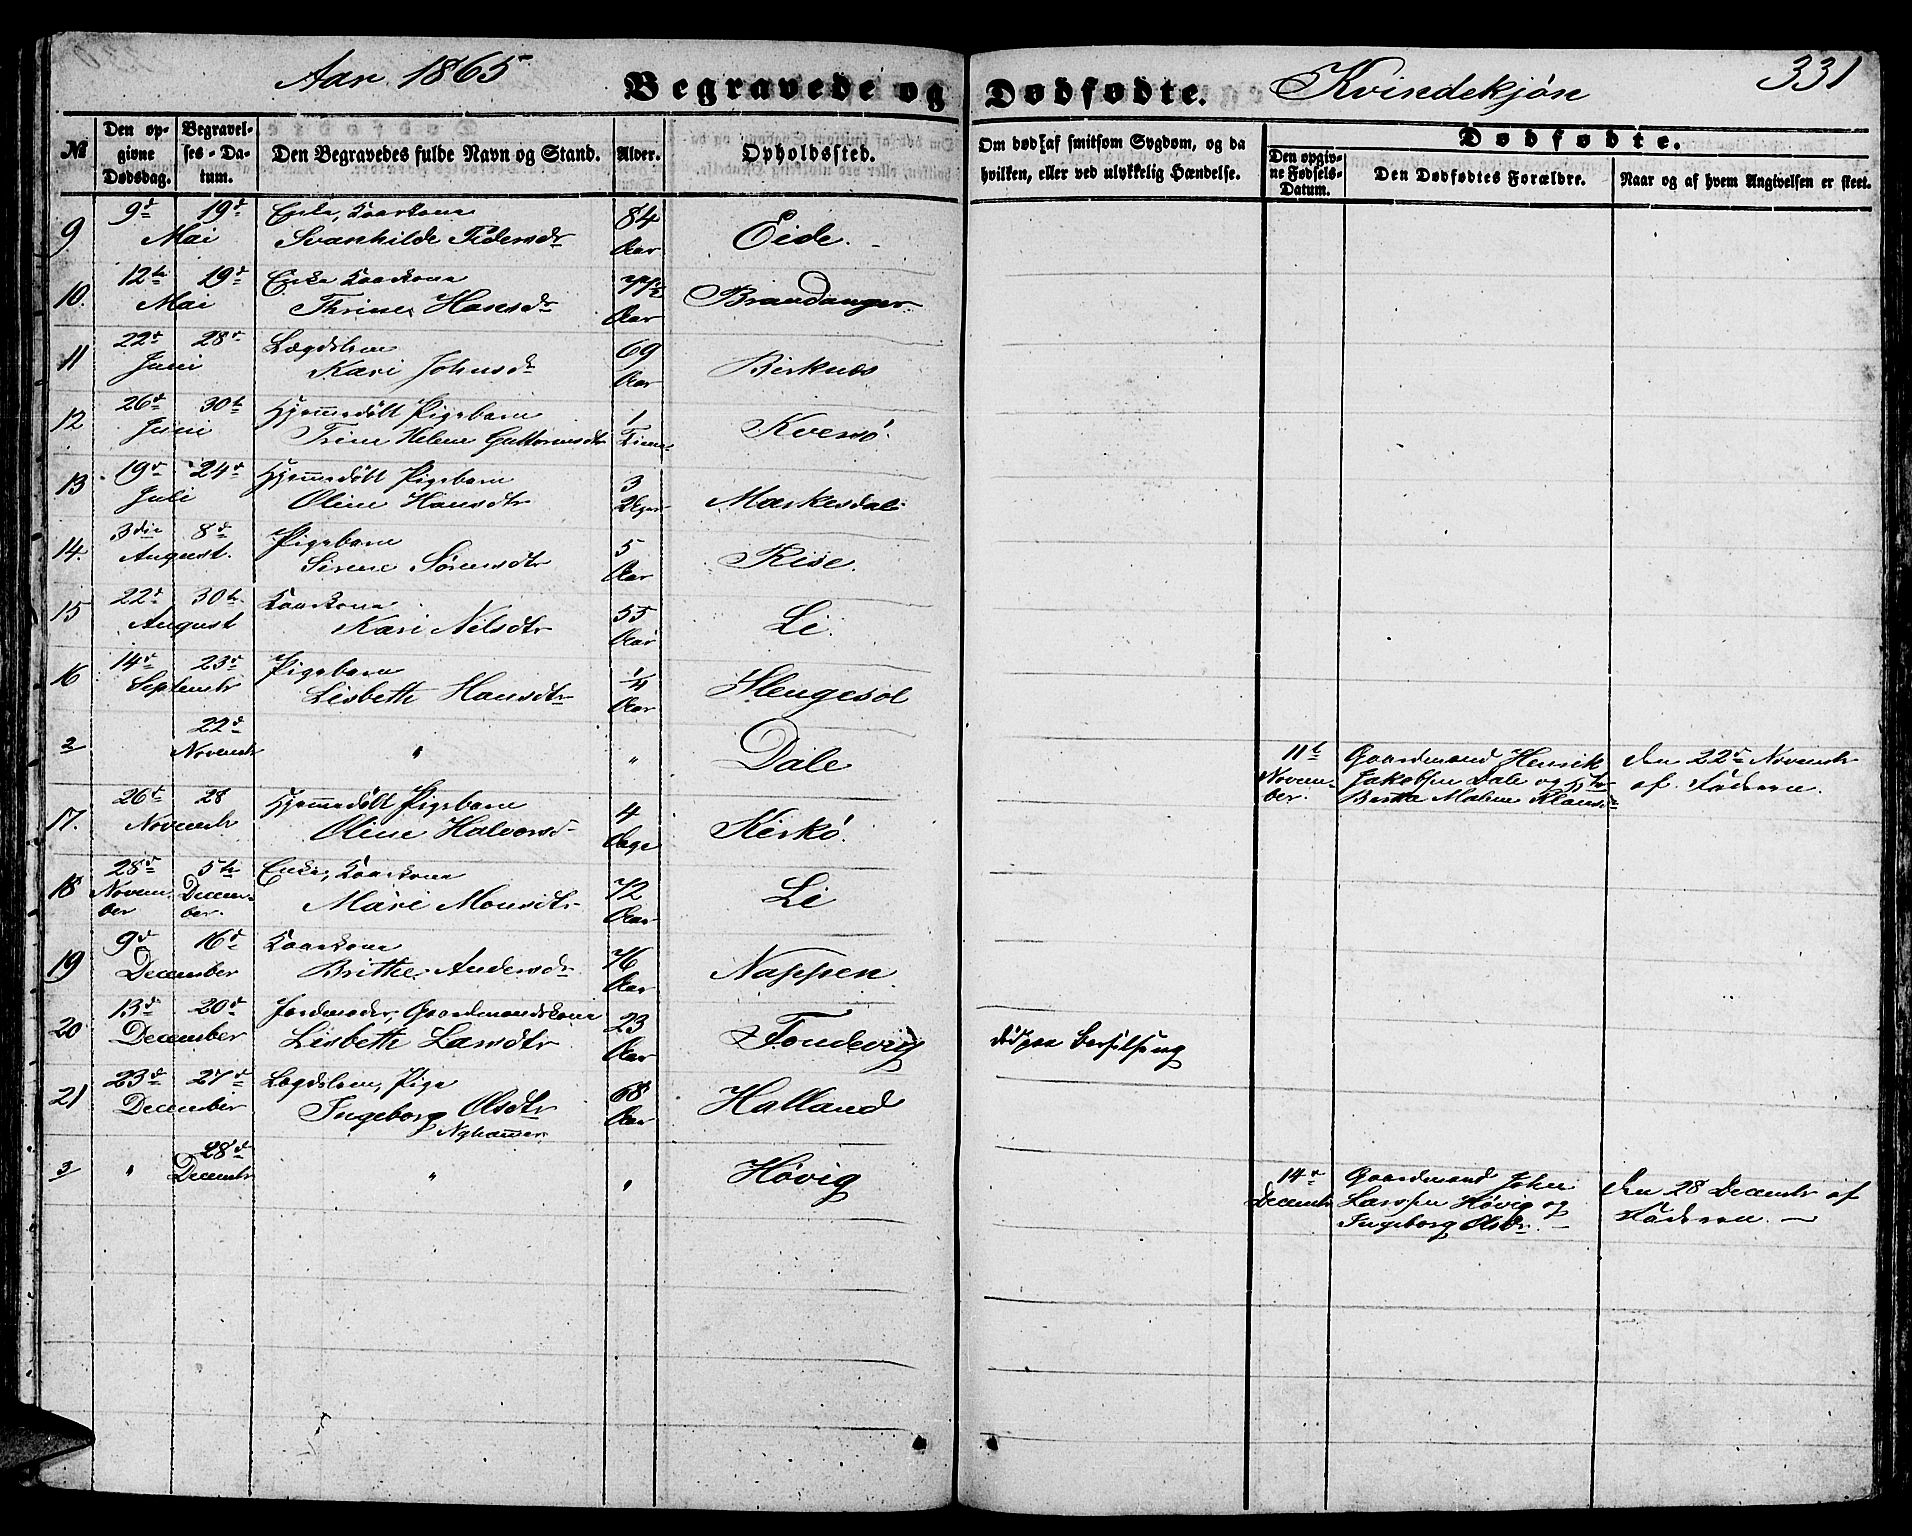 Aar 1865 Begravede og Dødfødte. Kvindekjøn 331
№ Den opgivne Dødsdag. Begravelses-Datum. Den Begravedes fulde Navn og Stand. Alder. Opholdssted. Om død af smitsom Sygdom, og da hvilken, eller ved ulykkelig Hændelse. Dødfødte.
Den opgivne Fødsels-Datum. Den Dødfødtes Forældre. Naar og af hvem Angivelsen er skeet.
9 9d Mai 19d Enke, Kaarkone
Svanhilde Pedersdr 84 Aar Eide.
10. 12te Mai 19d Enke Kaarkone
Thrine Hansdr Aar Brandanger
11 22d Juni 28d Lægdslem
Kari Johnsdr 69 Aar Birknes
12 26d Juni 30te Hjemmedøbt Pigebarn
Trine Helene Guttormsdtr 1 Time Kversø.
13 19d Juli 24d Hjemmedøbt Pigebarn
Oline Hansdtr 3 Uger Markesdal
14. 3die August. 8d Pigebarn
Sirene Sørensdtr 5 Aar Rise.
15 22d August 30te Kaarkone
Kari Nilsdtr 55 Aar Li.
16 14d Septembr 23d Pigebarn
Lisbette Hansdtr 1/4 Aar Hengesol
2 22d Novembr " " Dale 11te November. Gaardmand Henrik
Jakobsen Dale og Hu
Bertha Malene Klausdr Den 22d Novembr
af Faderen.
17. 26d Novembr 28 Hjemmedøbt Pigebarn
Oline Halvorsd 4 Dage Kirkø.
18 28d November 5te December. Enke, Kaarkone
Mari Monsdtr 72 Aar Li
19 9d December 16d Kaarkone
Britthe Andersdr 76 Aar Nappen
20 13d December 20d Jordmoder, Gaardmandskone
Lisbeth Larsdtr 23 Aar Tondevig død paa Barselseng
21 23d December 27d Lægdslem, Pige
Ingeborg Olsdtr
Nyhammer 68 Aar Halland
3 " 28d Decembr " " Høvig 14d Decembr Gaardmand John
Larssen Høvig og
Ingeborg Olsdr. Den 28 Decembr af
Faderen.